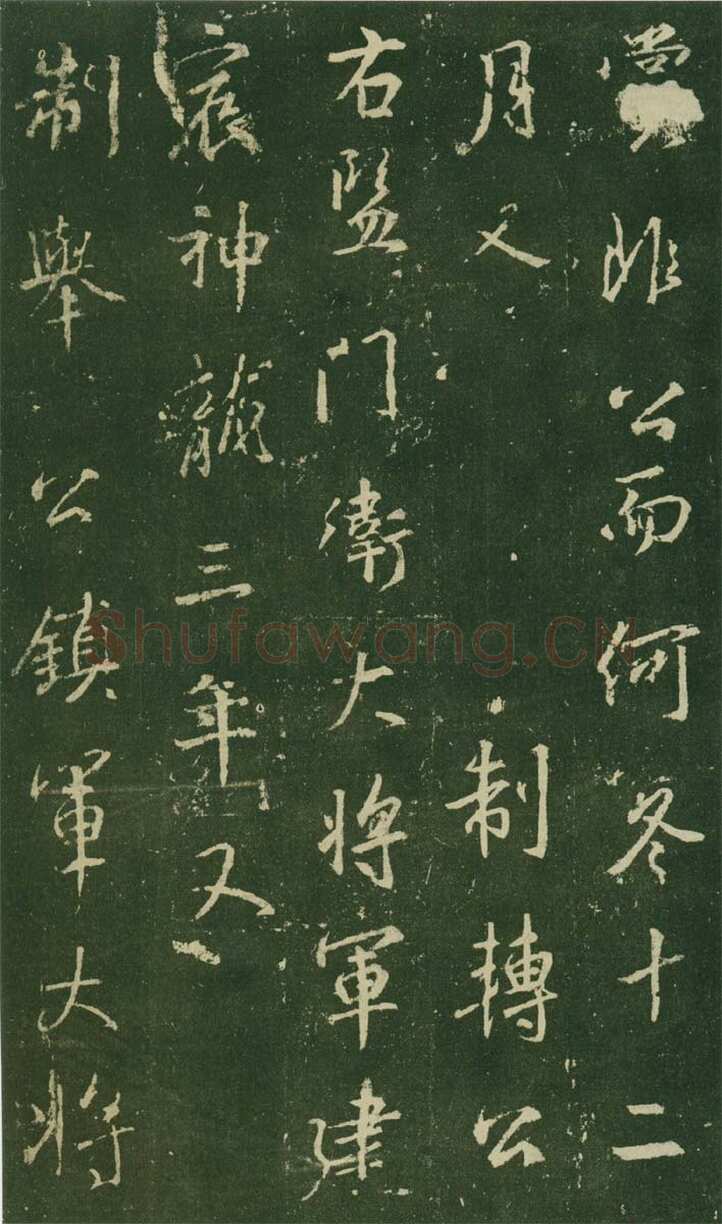 賞非公而何冬十二
月又制轉公
右監門衛大將軍建
宸神龍三年又
制舉公鎮軍大將
Shufawang.CN